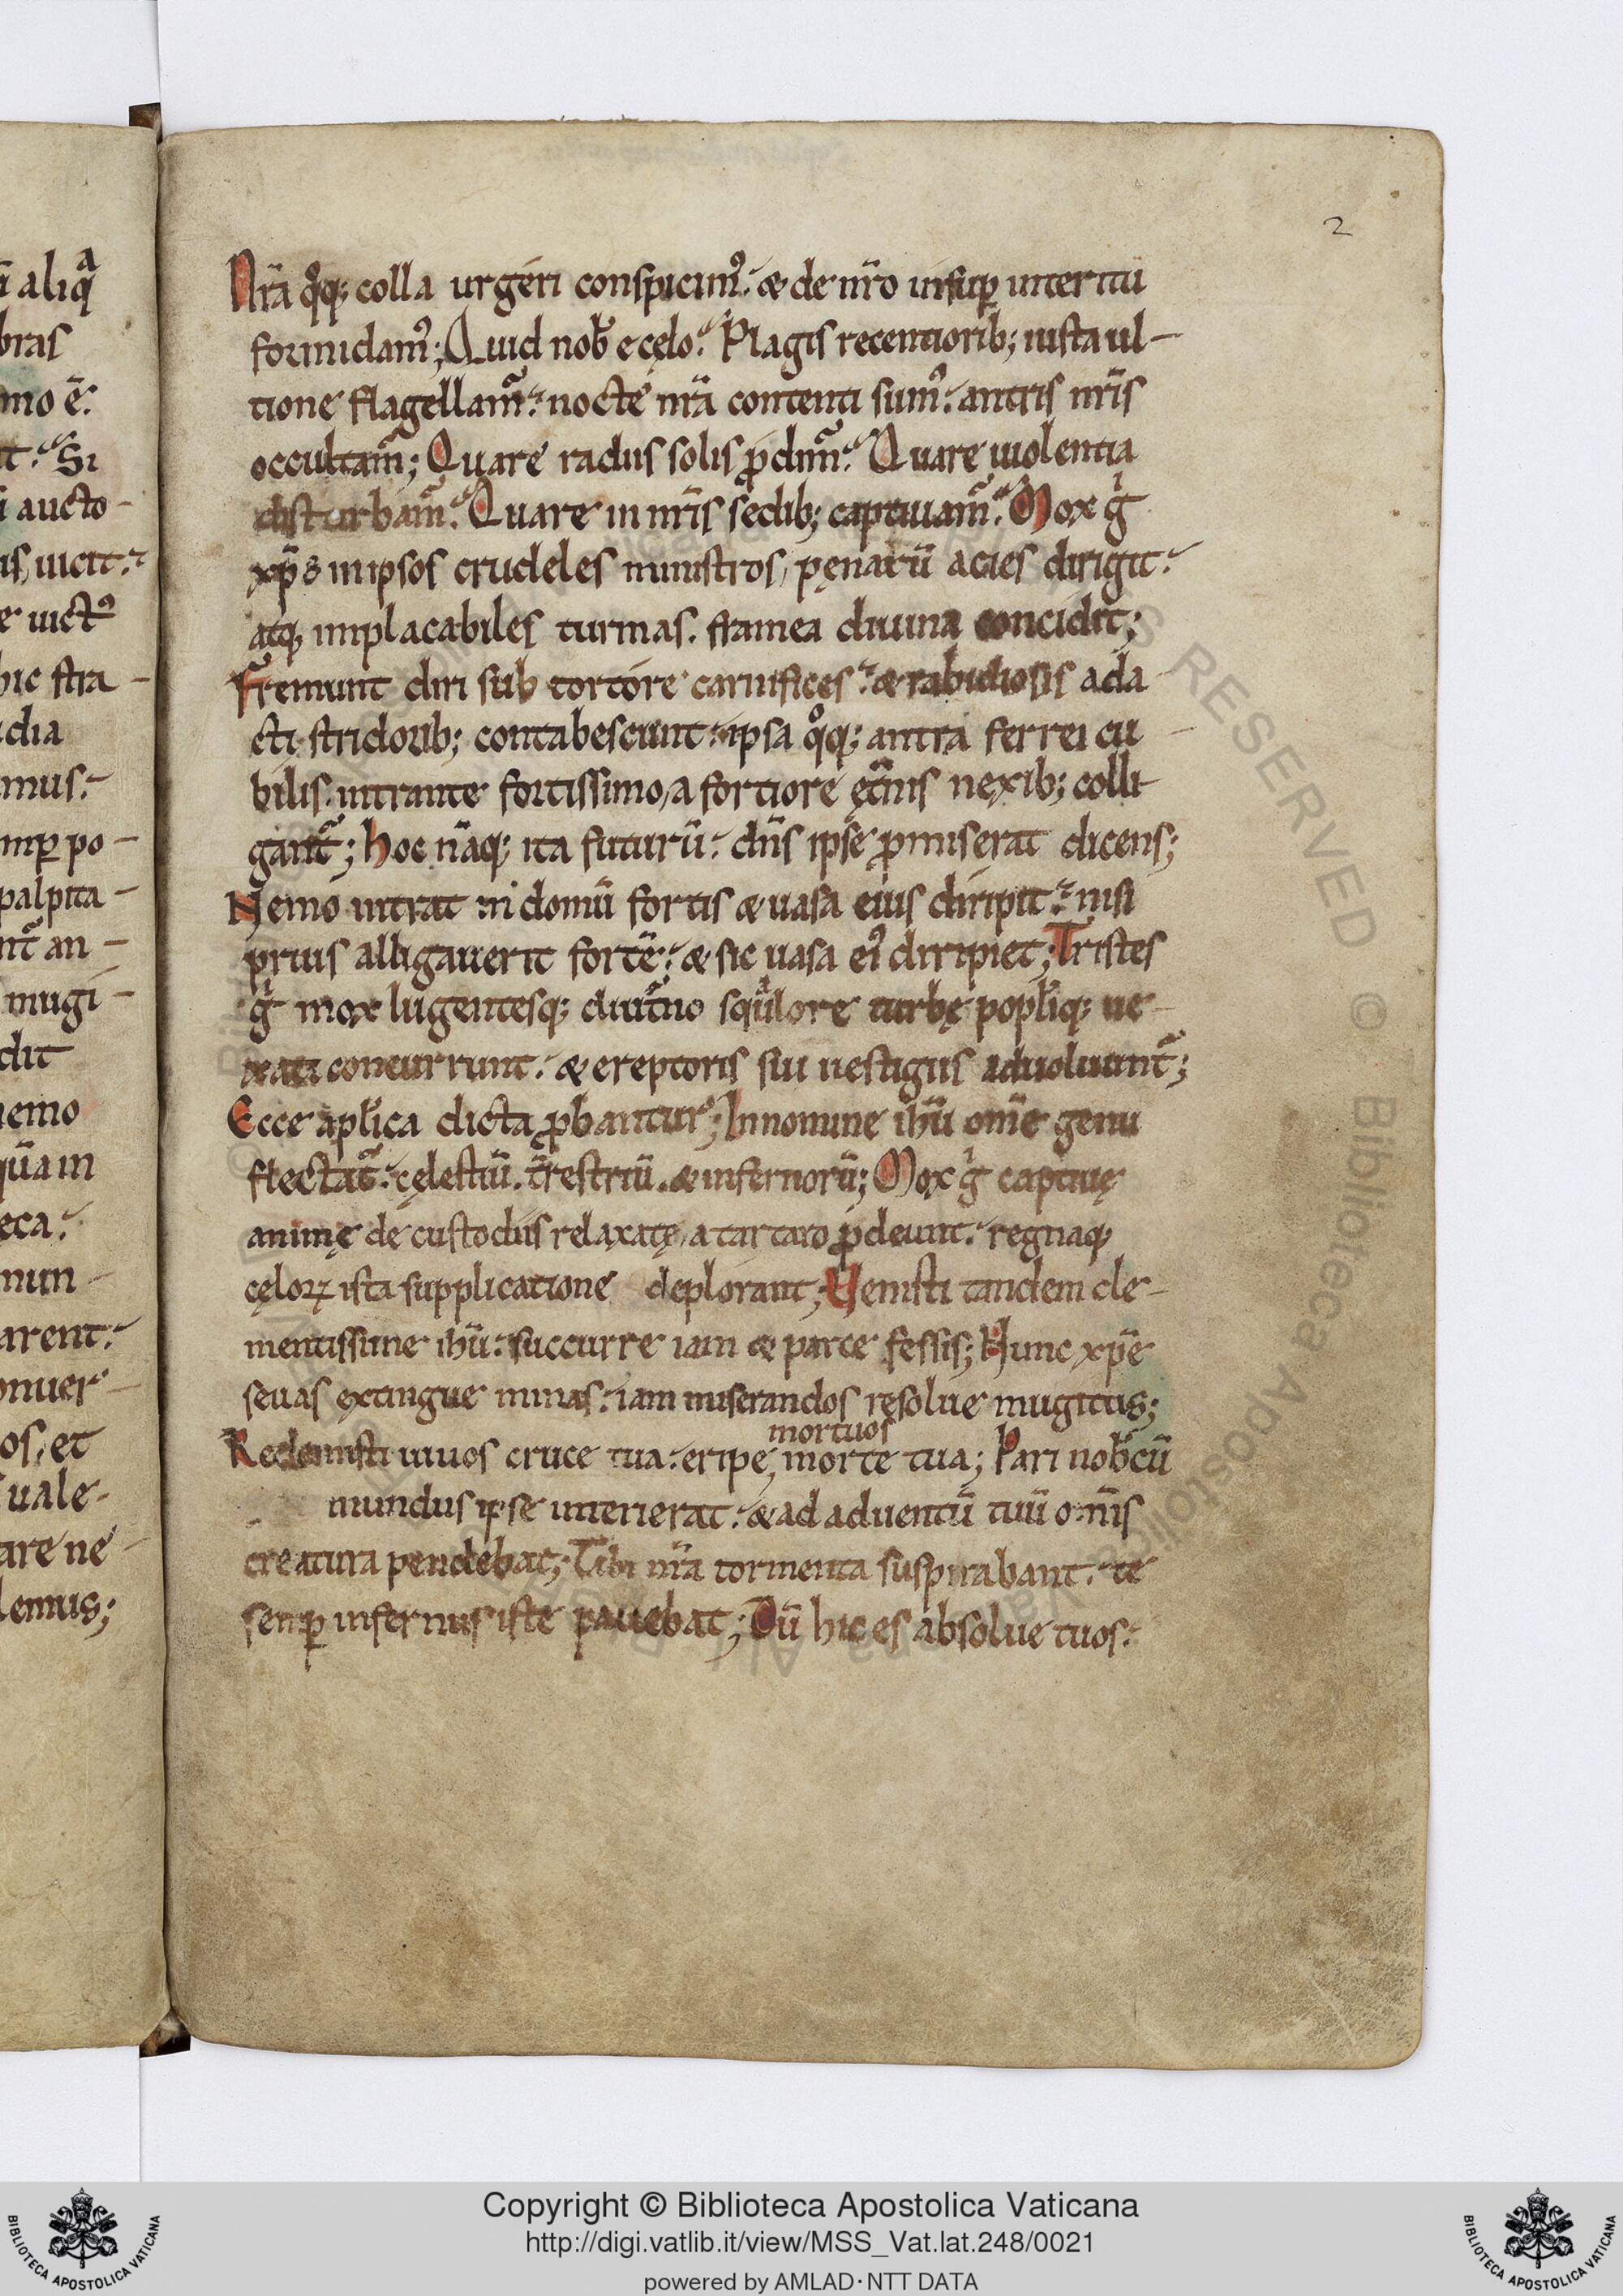 2
Nr̄a qͦq; colla urgeri conspicimꝰ. & de nr̄o insup̱ interitu
formidamꝰ; Quid nob̄ e cęlo. Plagis recentiorib; iusta ul-
tione flagellam̄. nocte nr̄a contenti sumꝰ. antris nr̄is
occultam̄; Quare radiis solis ꝓdim̄. Quare uiolentia
disturbam̄. Quare in nr̄is sedib; captiuam̄. Mox gͥ
xp̄s in ipsos crudeles ministros, pęnarū acies dirigit.
atq; implacabiles turmas. framea diuina concidit;
Fremunt diri sub tortore carnifices. & rabidiosis ada
cti stridorib; contabescunt. ipsa qͦq; antra ferrei cu-
bilis. intrante fortissimo, a fortiore ęt̄nis nexib; colli-
gant̄; Hoc nāq; ita futurū. dn̄s ipse ꝓmiserat dicens;
Nemo intrat in domū fortis & uasa eius diripit. nisi
prius alligauerit fortē. & sic uasa eiꝰ diripiet; Tristes
gͥ mox lugentesq; diut̄no squͣlore turbę popl̄iq; ue-
xati concurrunt. & ereptoris sui uestigiis aduoluunt̄;
Ecce apl̄ica dicta ꝓbantur; In nomine ih̄u om̄e genu
flectat̄. cęlestiū. t̄restriū. & infernorū; Mox gͥ captiuę
animę de custodiis relaxatę, a tartaro ꝓdeunt. regnaq;
cęloꝝ ista supplicatione deplorant; Venisti tandem cle-
mentissime ih̄u. succurre iam & parce fessis; Nunc xp̄e
seuas extingue minas. iam miserandos resolue mugitus;
mortuos
Redemisti uiuos cruce tua. eripe, morte tua; Pari nob̄cū
mundus ipse interierat. & ad aduentū tuū om̄is
creatura pendebat; Tibi nr̄a tormenta suspirabant. te
semp̱ infernus iste pauebat; Dū hic es absolue tuos.
ī aliqͣ
bras
mo ē.
t. Si
ī aucto-
is, uicit.
e uictꝰ
hic stra-
dia
mus.
mp̱ po-
palpita-
nt̄ an-
mugi-
dit
nemo
quā in
eca.
mun-
arent.
onuer-
os, et
uale-
are ne-
lemus;
Copyright © Biblioteca Apostolica Vaticana
http://digi.vatlib.it/view/MSS_Vat.lat.248/0021
powered by AMLAD·NTT DATA
BIBLIOTECA APOSTOLICA VATICANA
BIBLIOTECA APOSTOLICA VATICANA